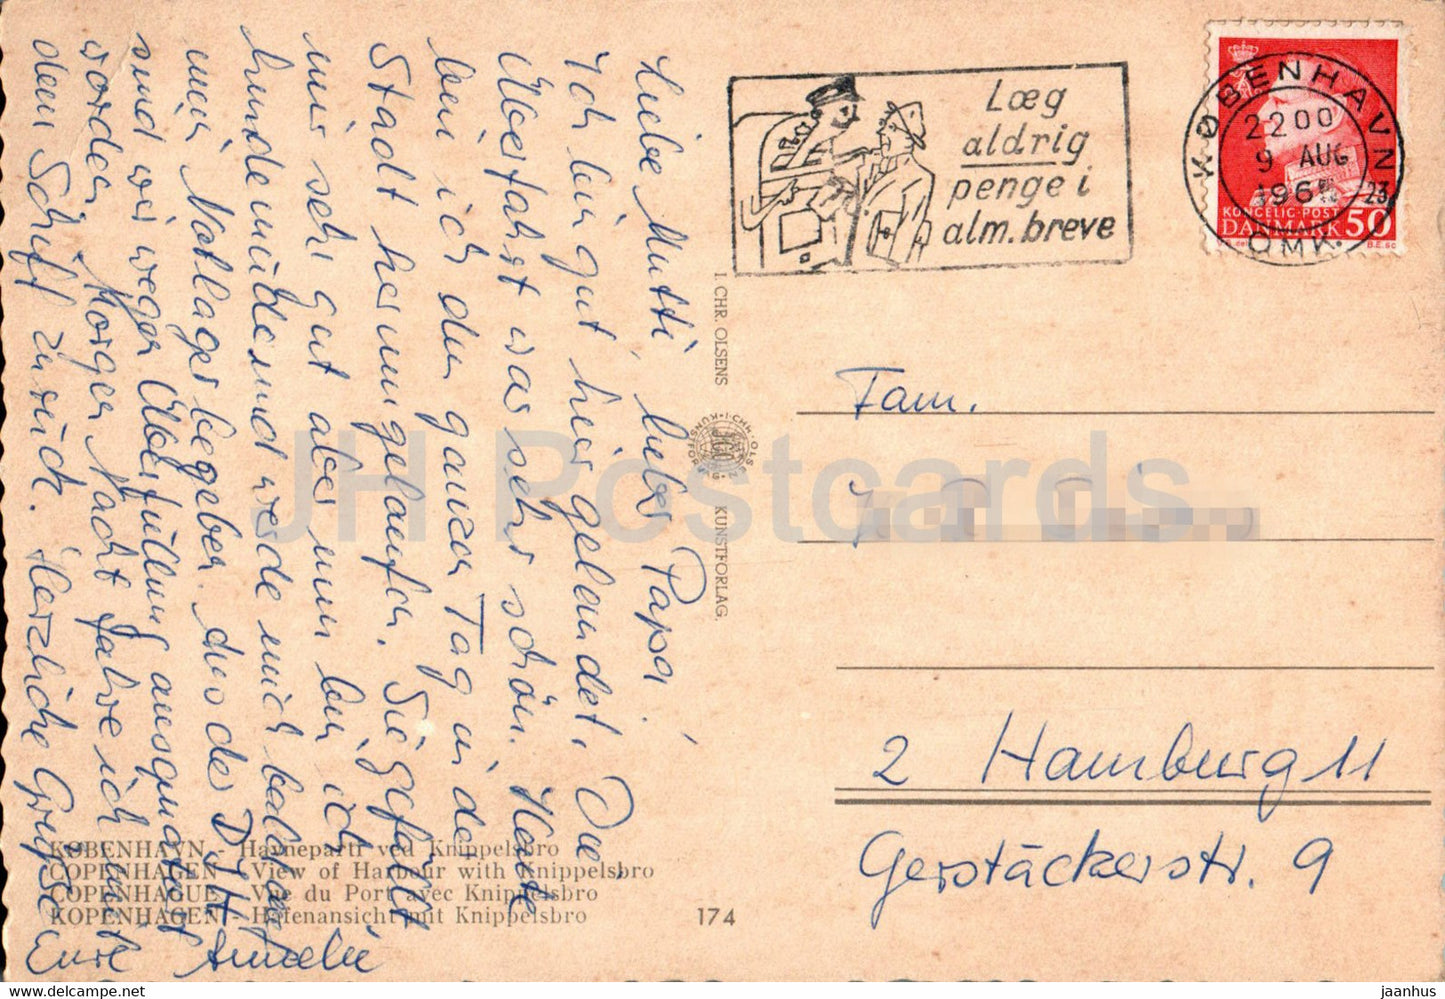 Liebe Mutti, lieber Papa,
Ich bin gut hier gelandet. Die
Überfahrt war sehr schön. Heute
bin ich den ganzen Tag in der
Stadt herumgelaufen. Sie gefällt
mir sehr gut aber nun bin ich
hundemüde und werde mich bald auf
mein Nachtlager begeben. Aus der DJH
sind wir wegen Überfüllung ausquartiert
worden. Morgen Nacht fahre ich mit
dem Schiff zurück. Herzliche Grüße
Eure Amelie
Læg
aldrig
penge i
alm. breve
KØBENHAVN
2200
9 AUG
196
23
OMK.
KONGELIG·POST
DANMARK 50
B.E.sc
I. CHR. OLSENS
KUNSTFORLAG.
Fam.
2 Hamburg 11
Gerstäckerstr. 9
KØBENHAVN - Havneparti ved Knippelsbro
COPENHAGEN - View of Harbour with Knippelsbro
COPENHAGUE - Vue du Port avec Knippelsbro
KOPENHAGEN - Hafenansicht mit Knippelsbro
174
JH Postcards
www.delcampe.net
jaanhus